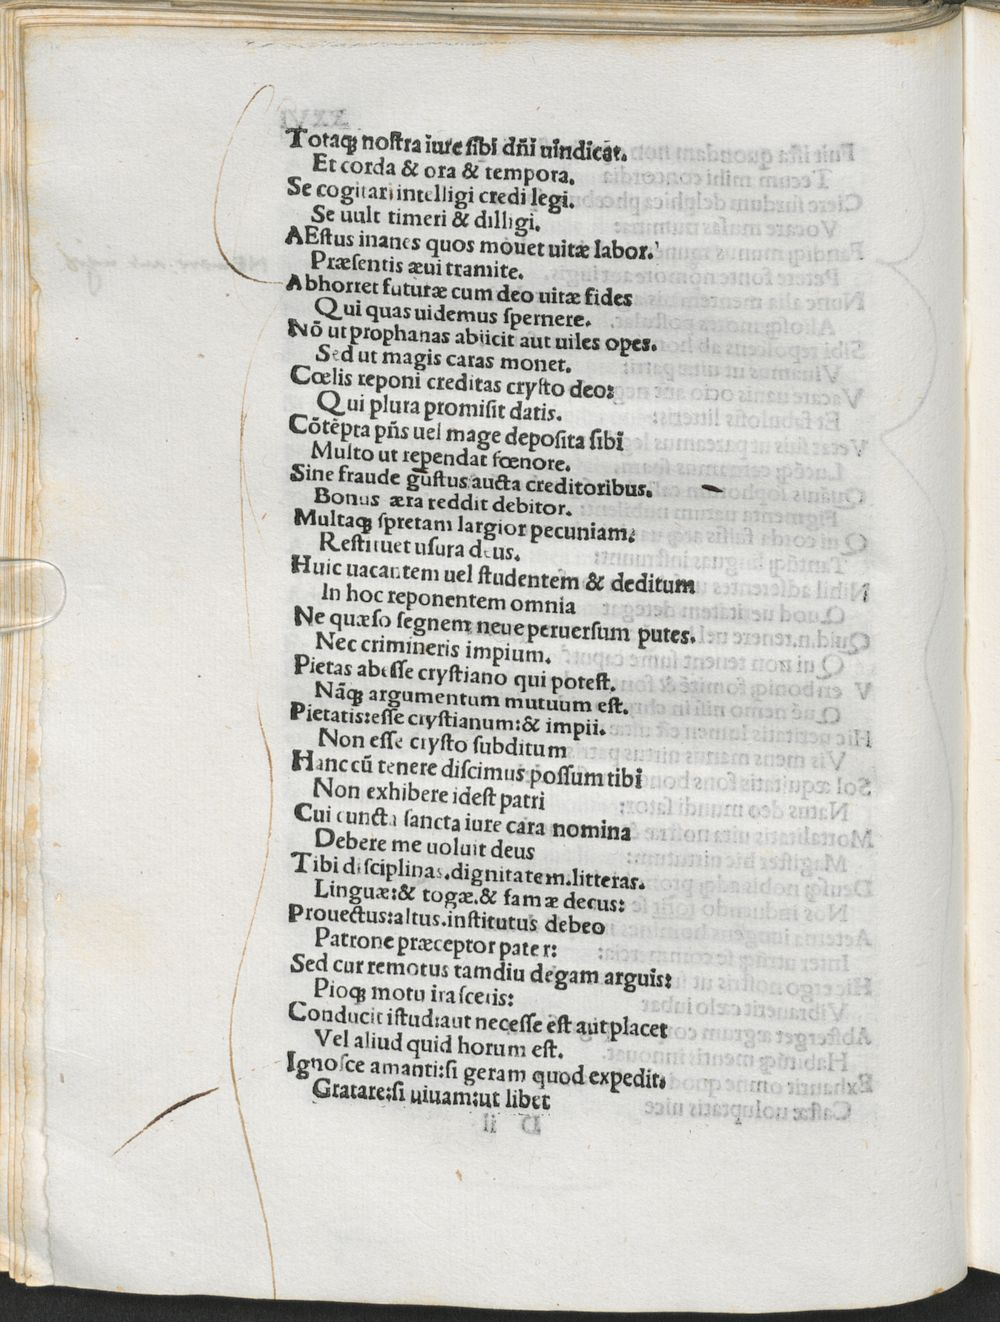 Totaqꝫ nostra iure sibi dñi uindicat.
Et corda & ora & tempora.
Se cogitari intelligi credi legi.
Se uult timeri & diligi.
AEstus inanes quos mouet uitæ labor.
Præsentis æui tramite.
Abhorret futuræ cum deo uitæ fides
Qui quas uidemus spernere.
Nõ ut prophanas abiicit aut uiles opes.
Sed ut magis caras monet.
Cœlis reponi creditas crysto deo:
Qui plura promisit datis.
Cõtẽpta pñs uel mage deposita sibi
Multo ut rependat fœnore.
Sine fraude gustus aucta creditoribus.
Bonus æra reddit debitor.
Multaqꝫ spretam largior pecuniam:
Restituet usura deus.
Huic uacantem uel studentem & deditum
In hoc reponentem omnia
Ne quæso segnem neue peruersum putes.
Nec crimineris impium.
Pietas abesse crystiano qui potest.
Nãqꝫ argumentum mutuum est.
Pietatis:esse crystianum:& impii.
Non esse crysto subditum
Hanc cũ tenere discimus possum tibi
Non exhibere idest patri
Cui cuncta sancta iure cara nomina
Debere me uoluit deus
Tibi disciplinas.dignitatem.litteras.
Linguæ:& togæ.& famæ decus:
Prouectus:altus.institutus debeo
Patrone præceptor pater:
Sed cur remotus tamdiu degam arguis:
Pioqꝫ motu irasceris:
Conducit istud:aut necesse est aut placet
Vel aliud quid horum est.
Ignosce amanti:si geram quod expedit.
Gratare:si uiuam:ut libet